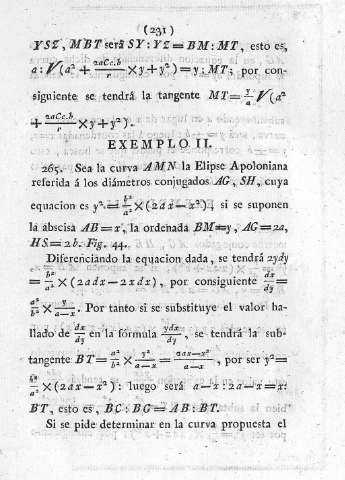 (231)
YSZ, MBT será SY : YZ = BM : MT, esto es,
a : √(a² + 2aCc.b/r × y + y²) = y : MT; por con-
siguiente se tendrá la tangente MT = y/a √(a²
+ 2aCc.b/r × y + y²).
EXEMPLO II.
265. Sea la curva AMN la Elipse Apoloniana
referida á los diámetros conjugados AG, SH, cuya
equacion es y² = b²/a² × (2ax — x²), si se suponen
la abscisa AB = x, la ordenada BM = y, AG = 2a,
HS = 2b. Fig. 44.
Diferenciando la equacion dada, se tendrá 2ydy
= b²/a² × (2adx — 2xdx), por consiguiente dx/dy =
a²/b² × y/a—x. Por tanto si se substituye el valor ha-
llado de dx/dy en la fórmula ydx/dy, se tendrá la sub-
tangente BT = a²/b² × y²/a—x = 2ax—x²/a—x, por ser y² =
b²/a² × (2ax — x²): luego será a—x : 2a—x = x :
BT, esto es, BC : BG = AB : BT.
Si se pide determinar en la curva propuesta el